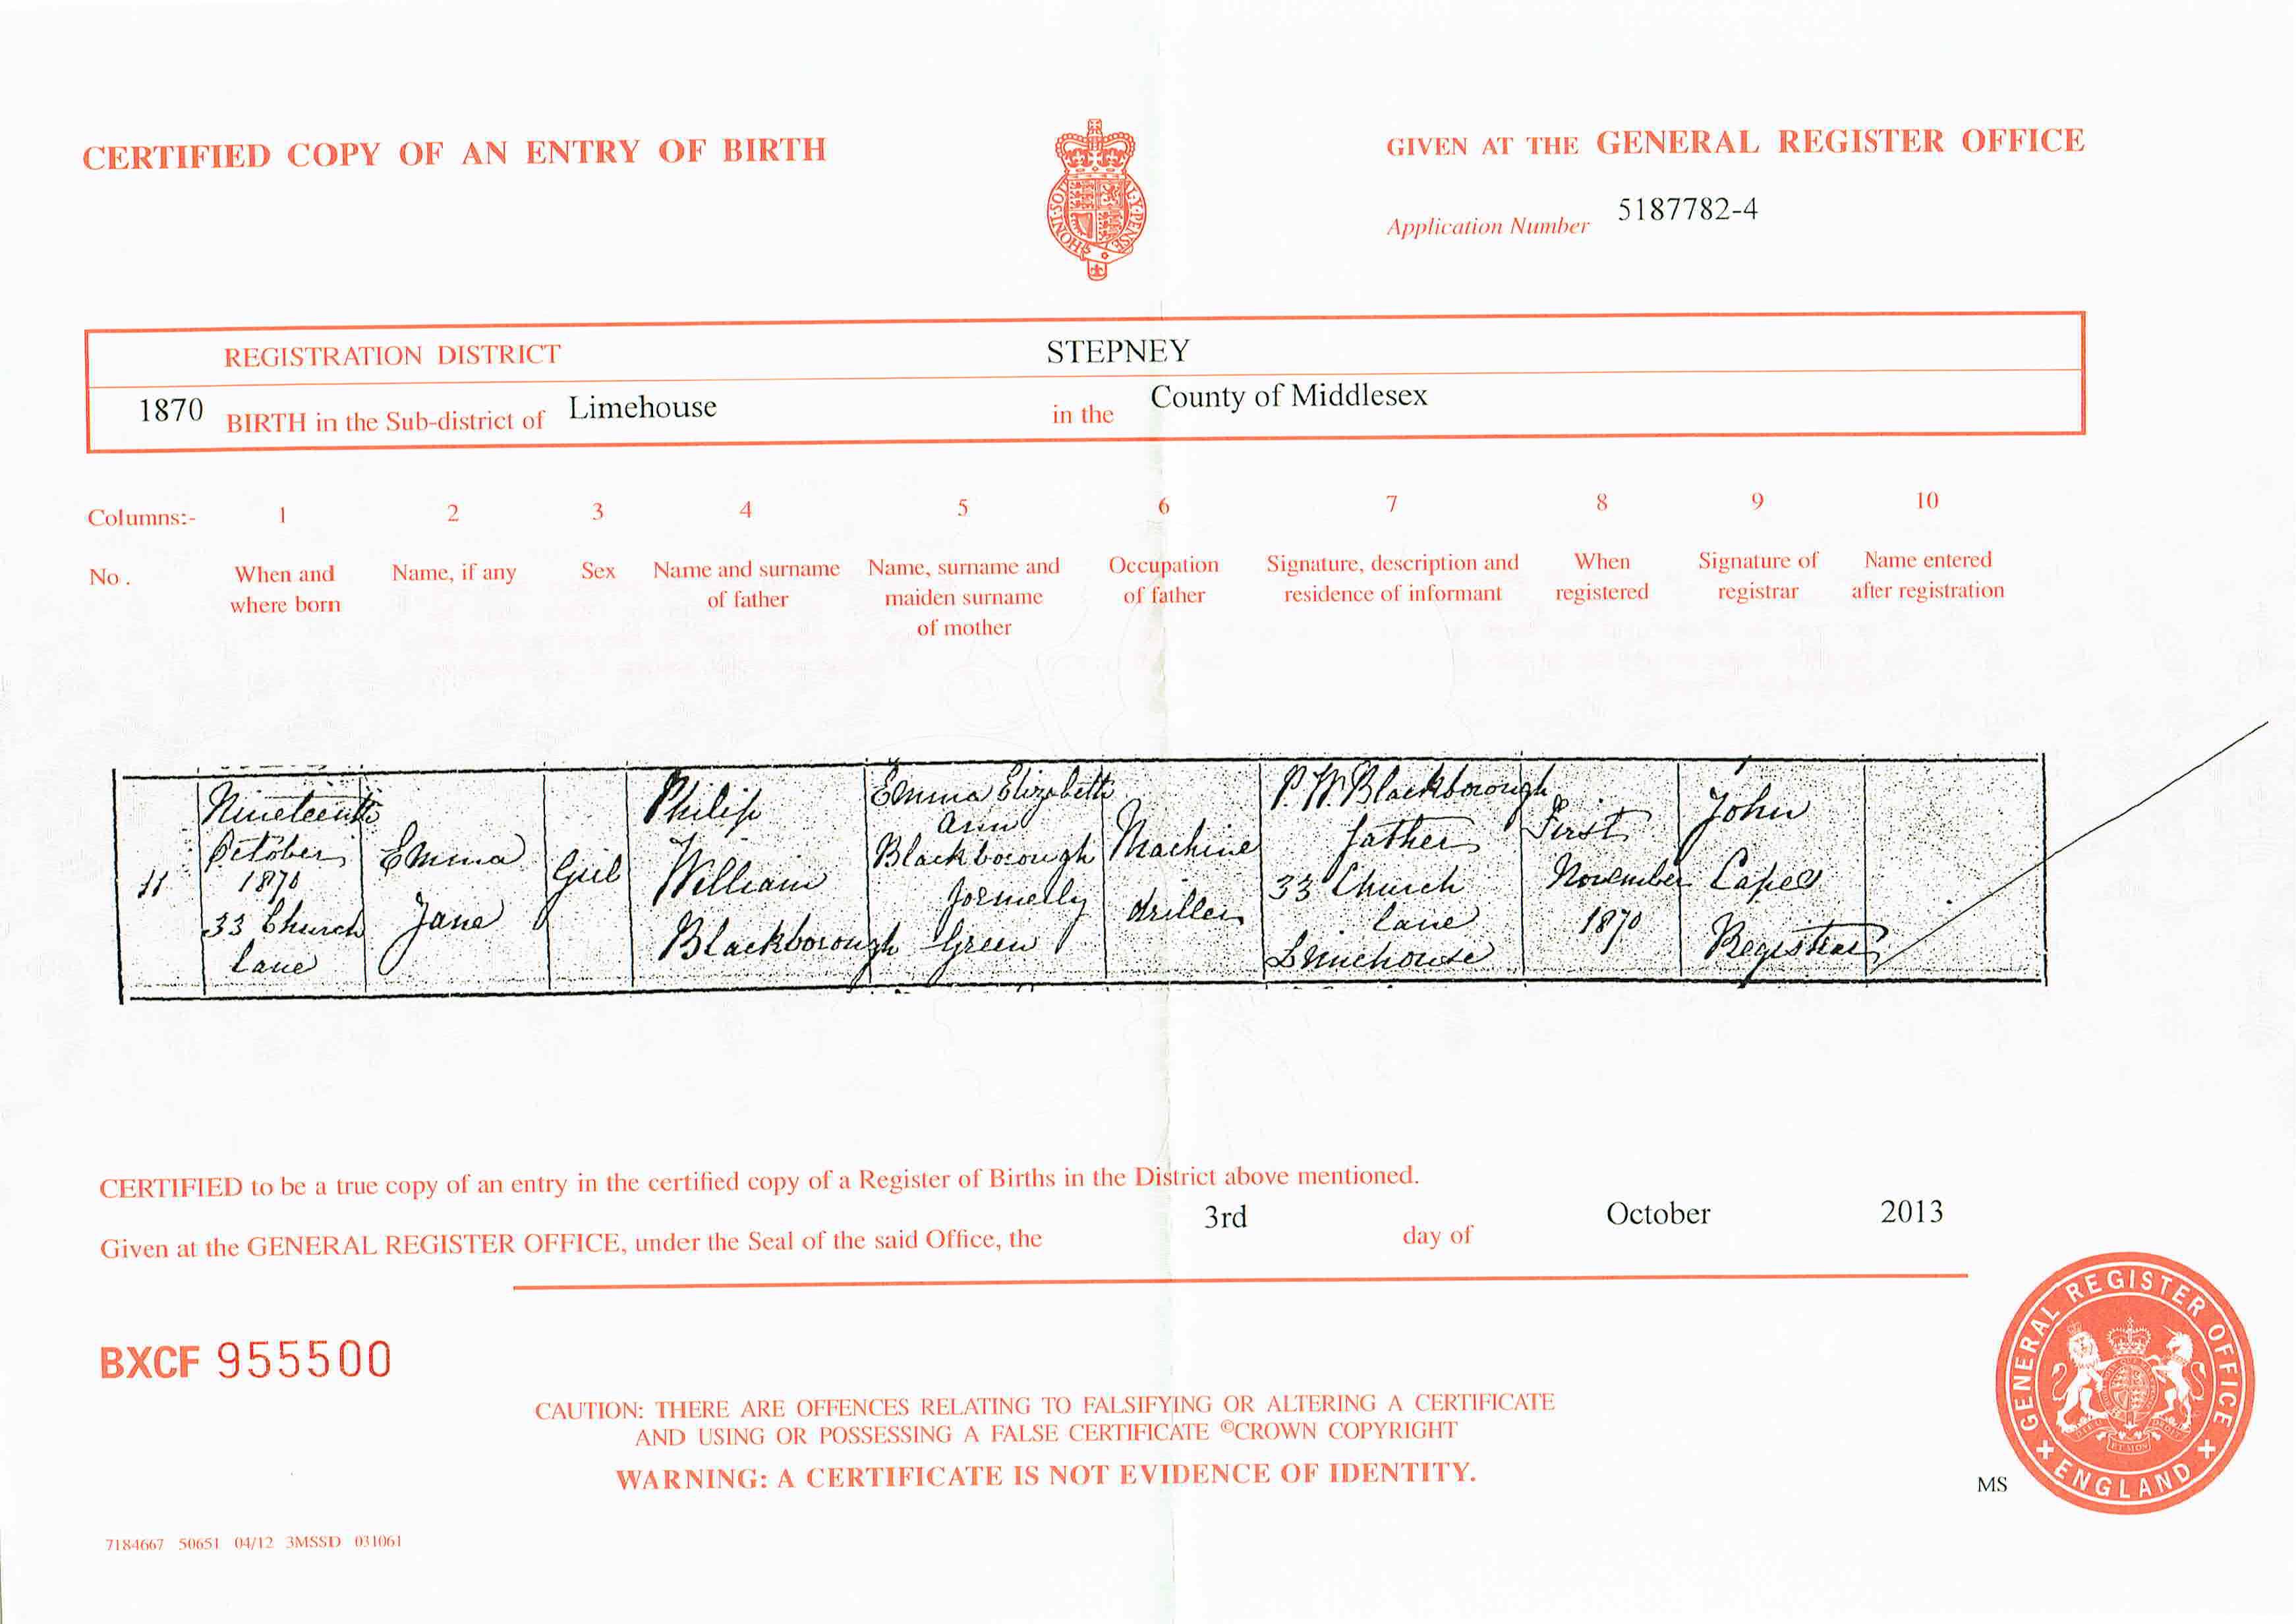 CERTIFIED COPY OF AN ENTRY OF BIRTH
GIVEN AT THE GENERAL REGISTER OFFICE
HONI·SOIT
AL·Y·PENSE
Application Number 5187782-4
REGISTRATION DISTRICT STEPNEY
1870 BIRTH in the Sub-district of Limehouse in the County of Middlesex
Columns:- 1 2 3 4 5 6 7 8 9 10
No. When and Name, if any Sex Name and surname Name, surname and Occupation Signature, description and When Signature of Name entered
where born of father maiden surname of father residence of informant registered registrar after registration
of mother
11
Nineteenth
October
1870
33 Church
Lane
Emma
Jane
Girl
Philip
William
Blackborough
Emma Elizabeth
Ann
Blackborough
formerly
Green
Machine
driller
P. W. Blackborough
father
33 Church
Lane
Limehouse
First
November
1870
John
Capel
Registrar
CERTIFIED to be a true copy of an entry in the certified copy of a Register of Births in the District above mentioned.
Given at the GENERAL REGISTER OFFICE, under the Seal of the said Office, the 3rd day of October 2013
BXCF 955500
CAUTION: THERE ARE OFFENCES RELATING TO FALSIFYING OR ALTERING A CERTIFICATE
AND USING OR POSSESSING A FALSE CERTIFICATE ©CROWN COPYRIGHT
WARNING: A CERTIFICATE IS NOT EVIDENCE OF IDENTITY.
MS
GENERAL REGISTER OFFICE
ENGLAND
7184667 50651 04/12 3MSSD 031061